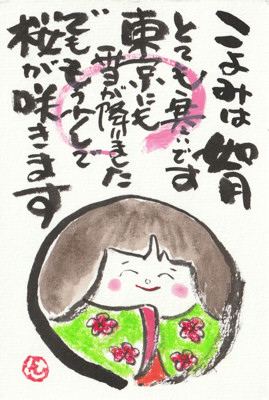 こよみは 如月
とても寒いです
東京にも
雪が降りました
でももう少しで
桜が咲きます